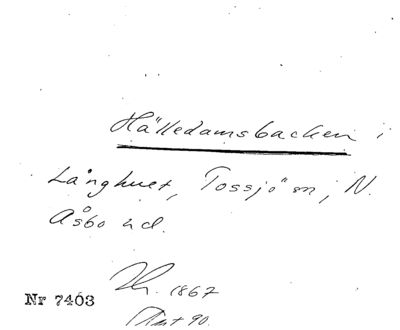 Hälledamsbacken i
Långhult, Tossjö sn, N.
Åsbo hd.
1867
Nr 7403
90.